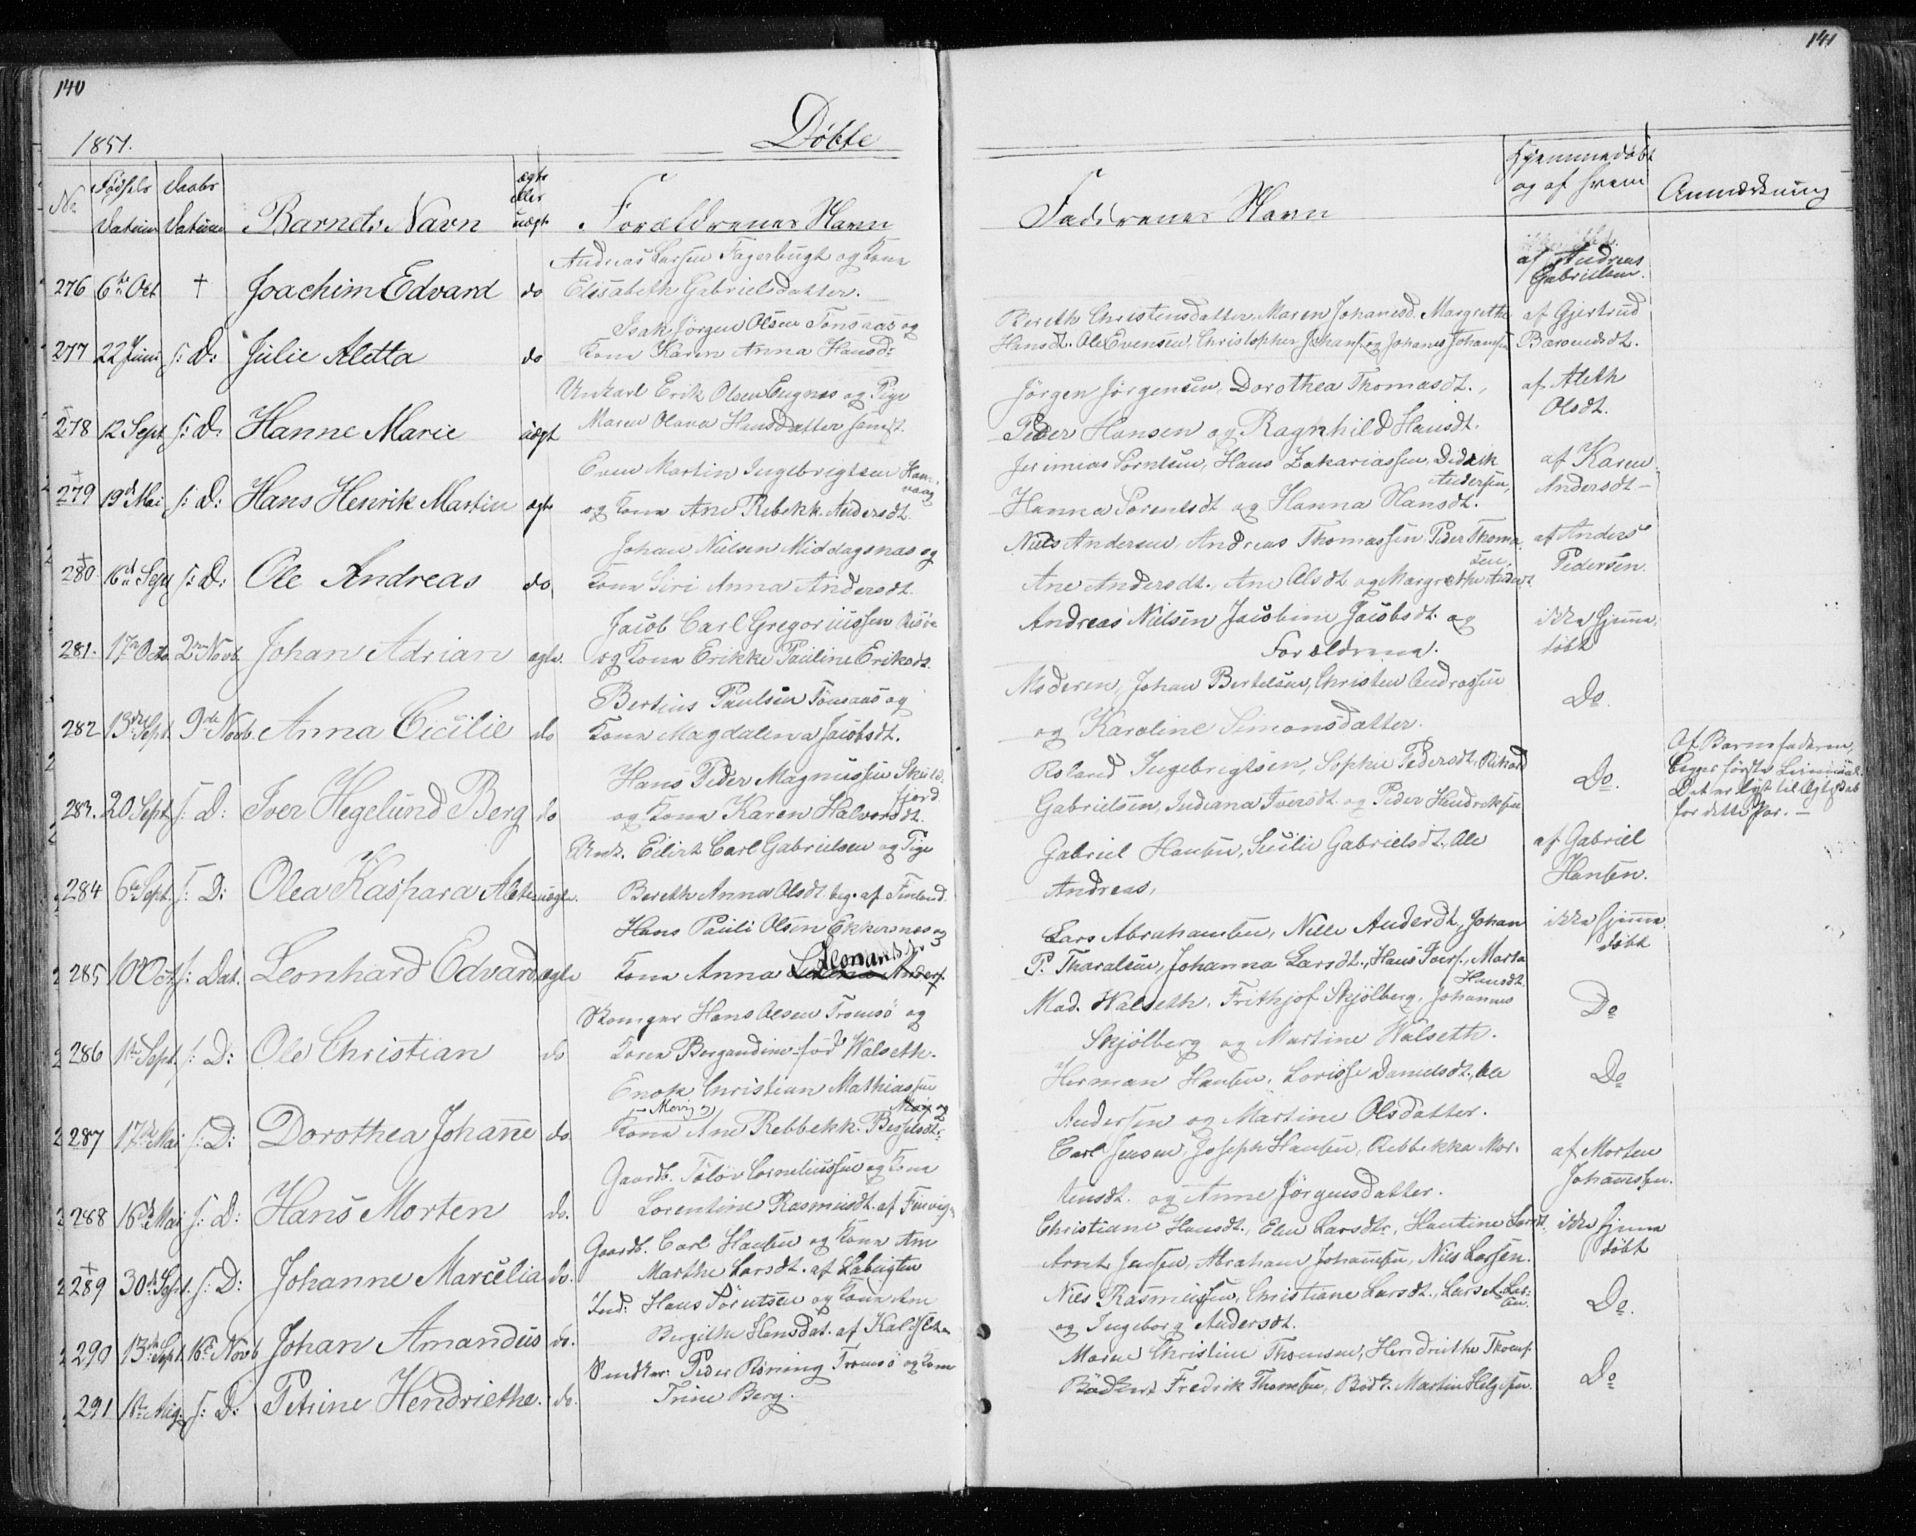 140
141
1851.
Døbte
No
Fødsels Datum
Daabs Datum
Barnets Navn
ægte eller uægte
Forældrenes Navn
Faddrenes Navn
Hjemmedøbt og af hvem
Anmærkning
276 6te Oct † Joachim Edvard do Andreas Larsen Fagerbugt og Kone
Elisabeth Gabrielsdatter.
af Andreas
Gabrielsen.
277 22 Juni s: D: Julie Aletta do Isak Jørgen Olsen Tonsaas og
Kone Karen Anna Hansd:
Bereth Christensdatter, Maren Johannsd. Margrethe
Hansdt. Ole Evensen, Christopher Johans. og Johannes Johansen
af Gjertrud
278 12 Sept s: D: Hanne Marie uægt Unkarl Erik Olsen og Pige
Maren Olava Hansdatter
Jørgen Jørgensen, Dorothea Thomasdt.,
Peder Hansen og Ragnhild Hansdt.
af Aleth
Olsdt.
279 19d Mai s: D: Hans Henrik Martin ægte Even Martin Ingebrigtsen
og Kone Ane Rebekk. Andersdt.
Jerimias Sorntsen, Hans Zakariassen, Didrik
Andersen,
Hanna Sorentsdt og Hanna Hansdt.
af Karen
Andersdt
280 16d Sept s: D: Ole Andreas do. Johan Nielsen Middagsnas og
Kone Siri Anna Andersdt.
Niels Andersen, Andreas Thomassen, Peder Thoma-
sen,
Ane Andersdt., Ane Olsdt og Margrethe Andersdt
af Anders
Pedersen.
281. 17de Octo. 2den Novb. Johan Adrian ægte. Jacob Carl Gregoriussen
og Kone Erikke Pauline Eriksdt.
Andreas Nielsen, Jacobine Jacobsdt. og
Forældrene.
ikke hjemme-
døbt
282 13de Sept. 9de Novb. Anna Cicilie do Bertius Paulsen Tonsaas og
Kone Magdalena Jacobsdt.
Moderen, Johan Bertelsen, Christen Andreasen
og Karoline Simonsdatter.
Do.
283. 20 Sept. s: D: Iver Hegelund Berg do Hans Peder Magnussen Skuls-
fjord
og Kone Karen Halvorsdt.
Roland Ingebrigtsen, Sophie Pedersdt, Rikard
Gabrielsen, Indiana Iversdt. og Peder Hendriksen
Do.
Af Barnefaderen,
begges første Leiermaal.
Det er lyst til Ægteskab
for dette Par. —
284 6te Sept. s: D: Olea Kaspara Alete uægte. Unk. Eilert Carl Gabrielsen og Pige
Bereth Anna Olsdt. beg. af Finland.
Gabriel Hansen, Secilie Gabrielsdt, Ole
Andreas,
af Gabriel
Hansen.
285 10 Oct s: Dat. Leonhard Edvard ægte Hans Pauli Olsen Ekkersnes og
Kone Anna
Lars Abrahamsen, Nille Andersdt, Johan
P. Tharalsen, Johanna Larsdt., Hans Ivers., Marta
Hansdt.
ikke hjemme
døbt
286 1te Sept. s: D: Ole Christian do Hans Olsen Tromsø og
Kone Bergandine fød Walseth.
Mad. Walseth, Frithjof Skjølberg, Johannes
Skjølberg og Martine Walseth.
Do
287 17de Mai s: D: Dorothea Johanne do. Enok Christian Mathiassen
Kone Ane Rebbekk.
Herman Hansen, Lovisse Danielsdt., Ole
Andersen og Martine Olsdatter.
Do
288 16d Mai s: D: Hans Morten do. Gaardb. Tøløv Corneliussen og Kone
Lorentine Rasmusdt. af
Carl Jensen, Joseph Hansen, Rebbekka Mor-
tensdt. og Anne Jørgensdatter.
af Morten
Johannsen.
289 30d Sept. s: D: Johanne Marcelia do. Gaardb. Carl Hansen og Kone Ane
Marthe Larsdt. af
Christiane Hansdt., Elen Larsdtr, Hantine Larsdt
Arnt Jensen, Abraham Johannsen, Nils Larsen.
ikke hjemme
døbt
290 13de Sept. 16de Novb Johan Amandus do. Ind: Hans Sørentsen og Kone Ane
Bergithe Hansdat. af
Niels Rasmussen, Christiane Larsdt., Lars A. Lar-
sen.
og Ingeborg Andersdt.
Do.
291 18de Aug. s: D: Petrine Hendriethe. do. Snedker Peder Røning Tromsø og Kone
Trine Berg.
Maren Christine Thomsen, Hendriethe Thoms.
Bødker Fredrik Thomsen, Bødk. Martin Helgesen.
Do